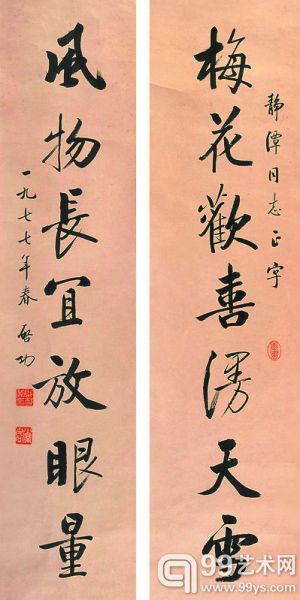 静潭同志正字
梅花歡喜漫天雪
風物長宜放眼量
一九七七年春 啓功
99艺术网
www.99ys.com